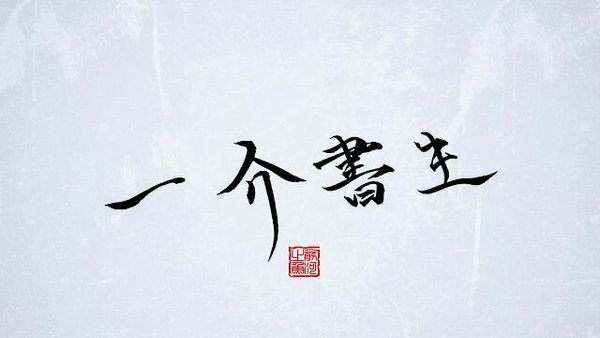 一介書生